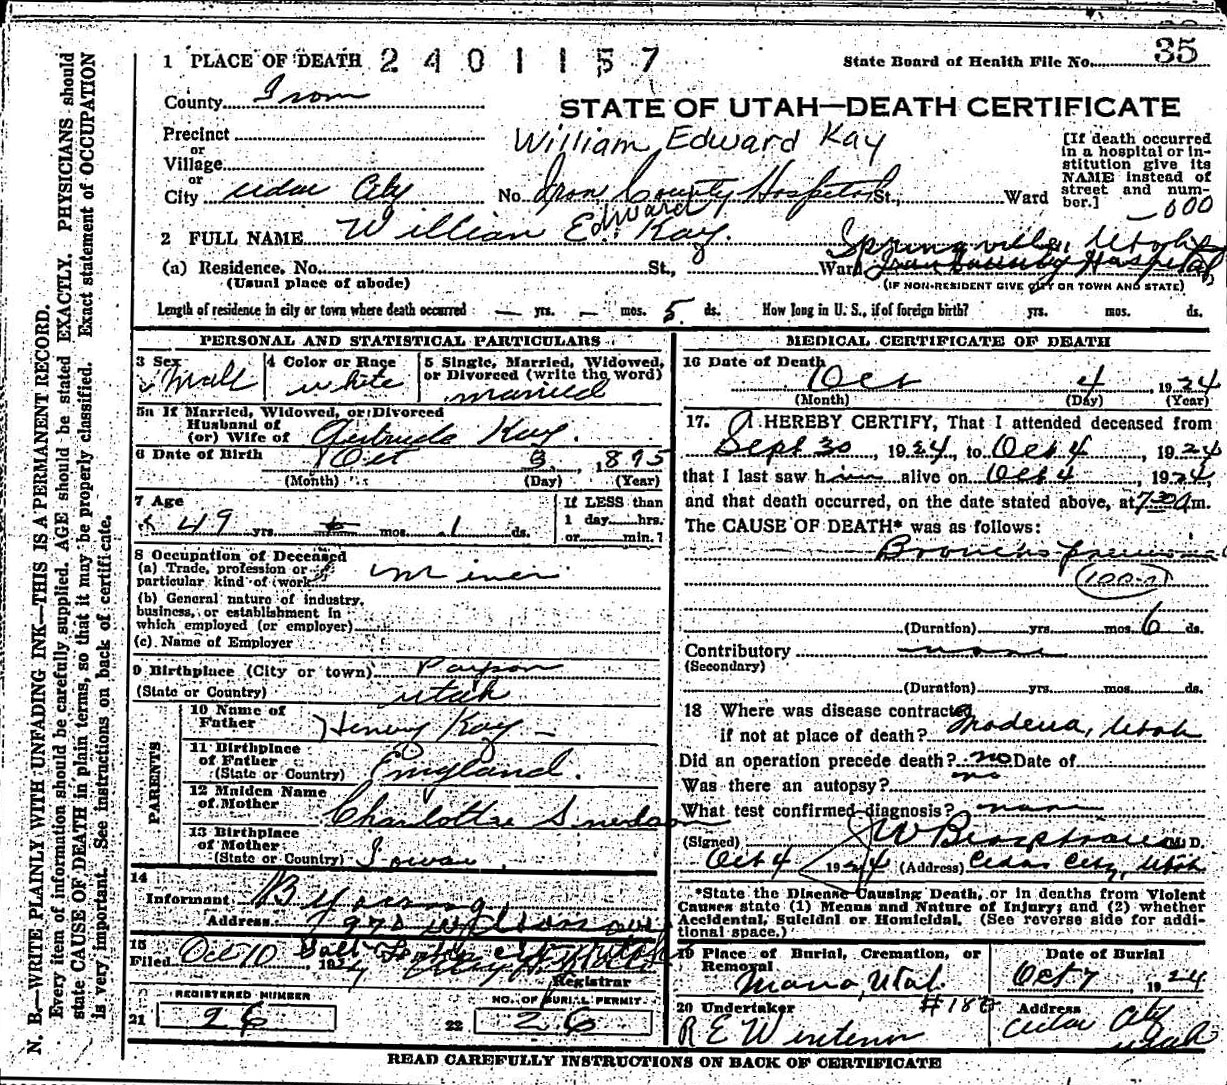 35
1 PLACE OF DEATH 2401157 State Board of Health File No.
County Iron
STATE OF UTAH—DEATH CERTIFICATE
Precinct
or
Village
or
City Cedar City No. Iron County Hospital St., Ward
William Edward Kay
[If death occurred
in a hospital or in-
stitution give its
NAME instead of
street and num-
ber.]
2 FULL NAME William Ed. Kay.
Edward
Springville, Utah
(a) Residence. No. St., Ward Iron County Hospital
(Usual place of abode) (IF NON-RESIDENT GIVE CITY OR TOWN AND STATE)
Length of residence in city or town where death occurred — yrs. — mos. 5 ds. How long in U. S., if of foreign birth? yrs. mos. ds.
PERSONAL AND STATISTICAL PARTICULARS
3 Sex 4 Color or Race 5 Single, Married, Widowed,
or Divorced (write the word)
Mall white married
5a If Married, Widowed, or Divorced
Husband of
(or) Wife of Gertrude Kay.
6 Date of Birth Oct 3, 1895
(Month) (Day) (Year)
7 Age If LESS than
49 yrs. mos. 1 ds. 1 day hrs.
or min.?
8 Occupation of Deceased
(a) Trade, profession or
particular kind of work Miner
(b) General nature of industry,
business, or establishment in
which employed (or employer)
(c) Name of Employer
9 Birthplace (City or town) Payson
(State or Country) Utah
PARENTS
10 Name of
Father Henry Kay
11 Birthplace
of Father
(State or Country) England.
12 Maiden Name
of Mother Charlotte
13 Birthplace
of Mother
(State or Country) Iowa
14
Informant B Young
Address
15
Filed Oct 10, 1924
Registrar
REGISTERED NUMBER NO. OF BURIAL PERMIT
21 26 22 26
MEDICAL CERTIFICATE OF DEATH
16 Date of Death
Oct 4 1924
(Month) (Day) (Year)
17. I HEREBY CERTIFY, That I attended deceased from
Sept 30, 1924, to Oct 4, 1924
that I last saw him alive on Oct 4, 1924,
and that death occurred, on the date stated above, at 7:30 A m.
The CAUSE OF DEATH* was as follows:
Broncho pneumonia
(Duration) yrs. mos. 6 ds.
Contributory none
(Secondary)
(Duration) yrs. mos. ds.
18 Where was disease contracted
if not at place of death? Modena, Utah
Did an operation precede death? no Date of
Was there an autopsy? no
What test confirmed diagnosis? none
(Signed) M. D.
Oct 4 1924 (Address) Cedar City, Utah
*State the Disease Causing Death, or in deaths from Violent
Causes state (1) Means and Nature of Injury; and (2) whether
Accidental, Suicidal or Homicidal. (See reverse side for addi-
tional space.)
19 Place of Burial, Cremation, or
Removal
Date of Burial
Oct 7 1924
#188
20 Undertaker Address
Cedar City
Utah
READ CAREFULLY INSTRUCTIONS ON BACK OF CERTIFICATE
N. B.—WRITE PLAINLY WITH UNFADING INK—THIS IS A PERMANENT RECORD.
Every item of information should be carefully supplied. AGE should be stated EXACTLY. PHYSICIANS should
state CAUSE OF DEATH in plain terms, so that it may be properly classified. Exact statement of OCCUPATION
is very important. See instructions on back of certificate.